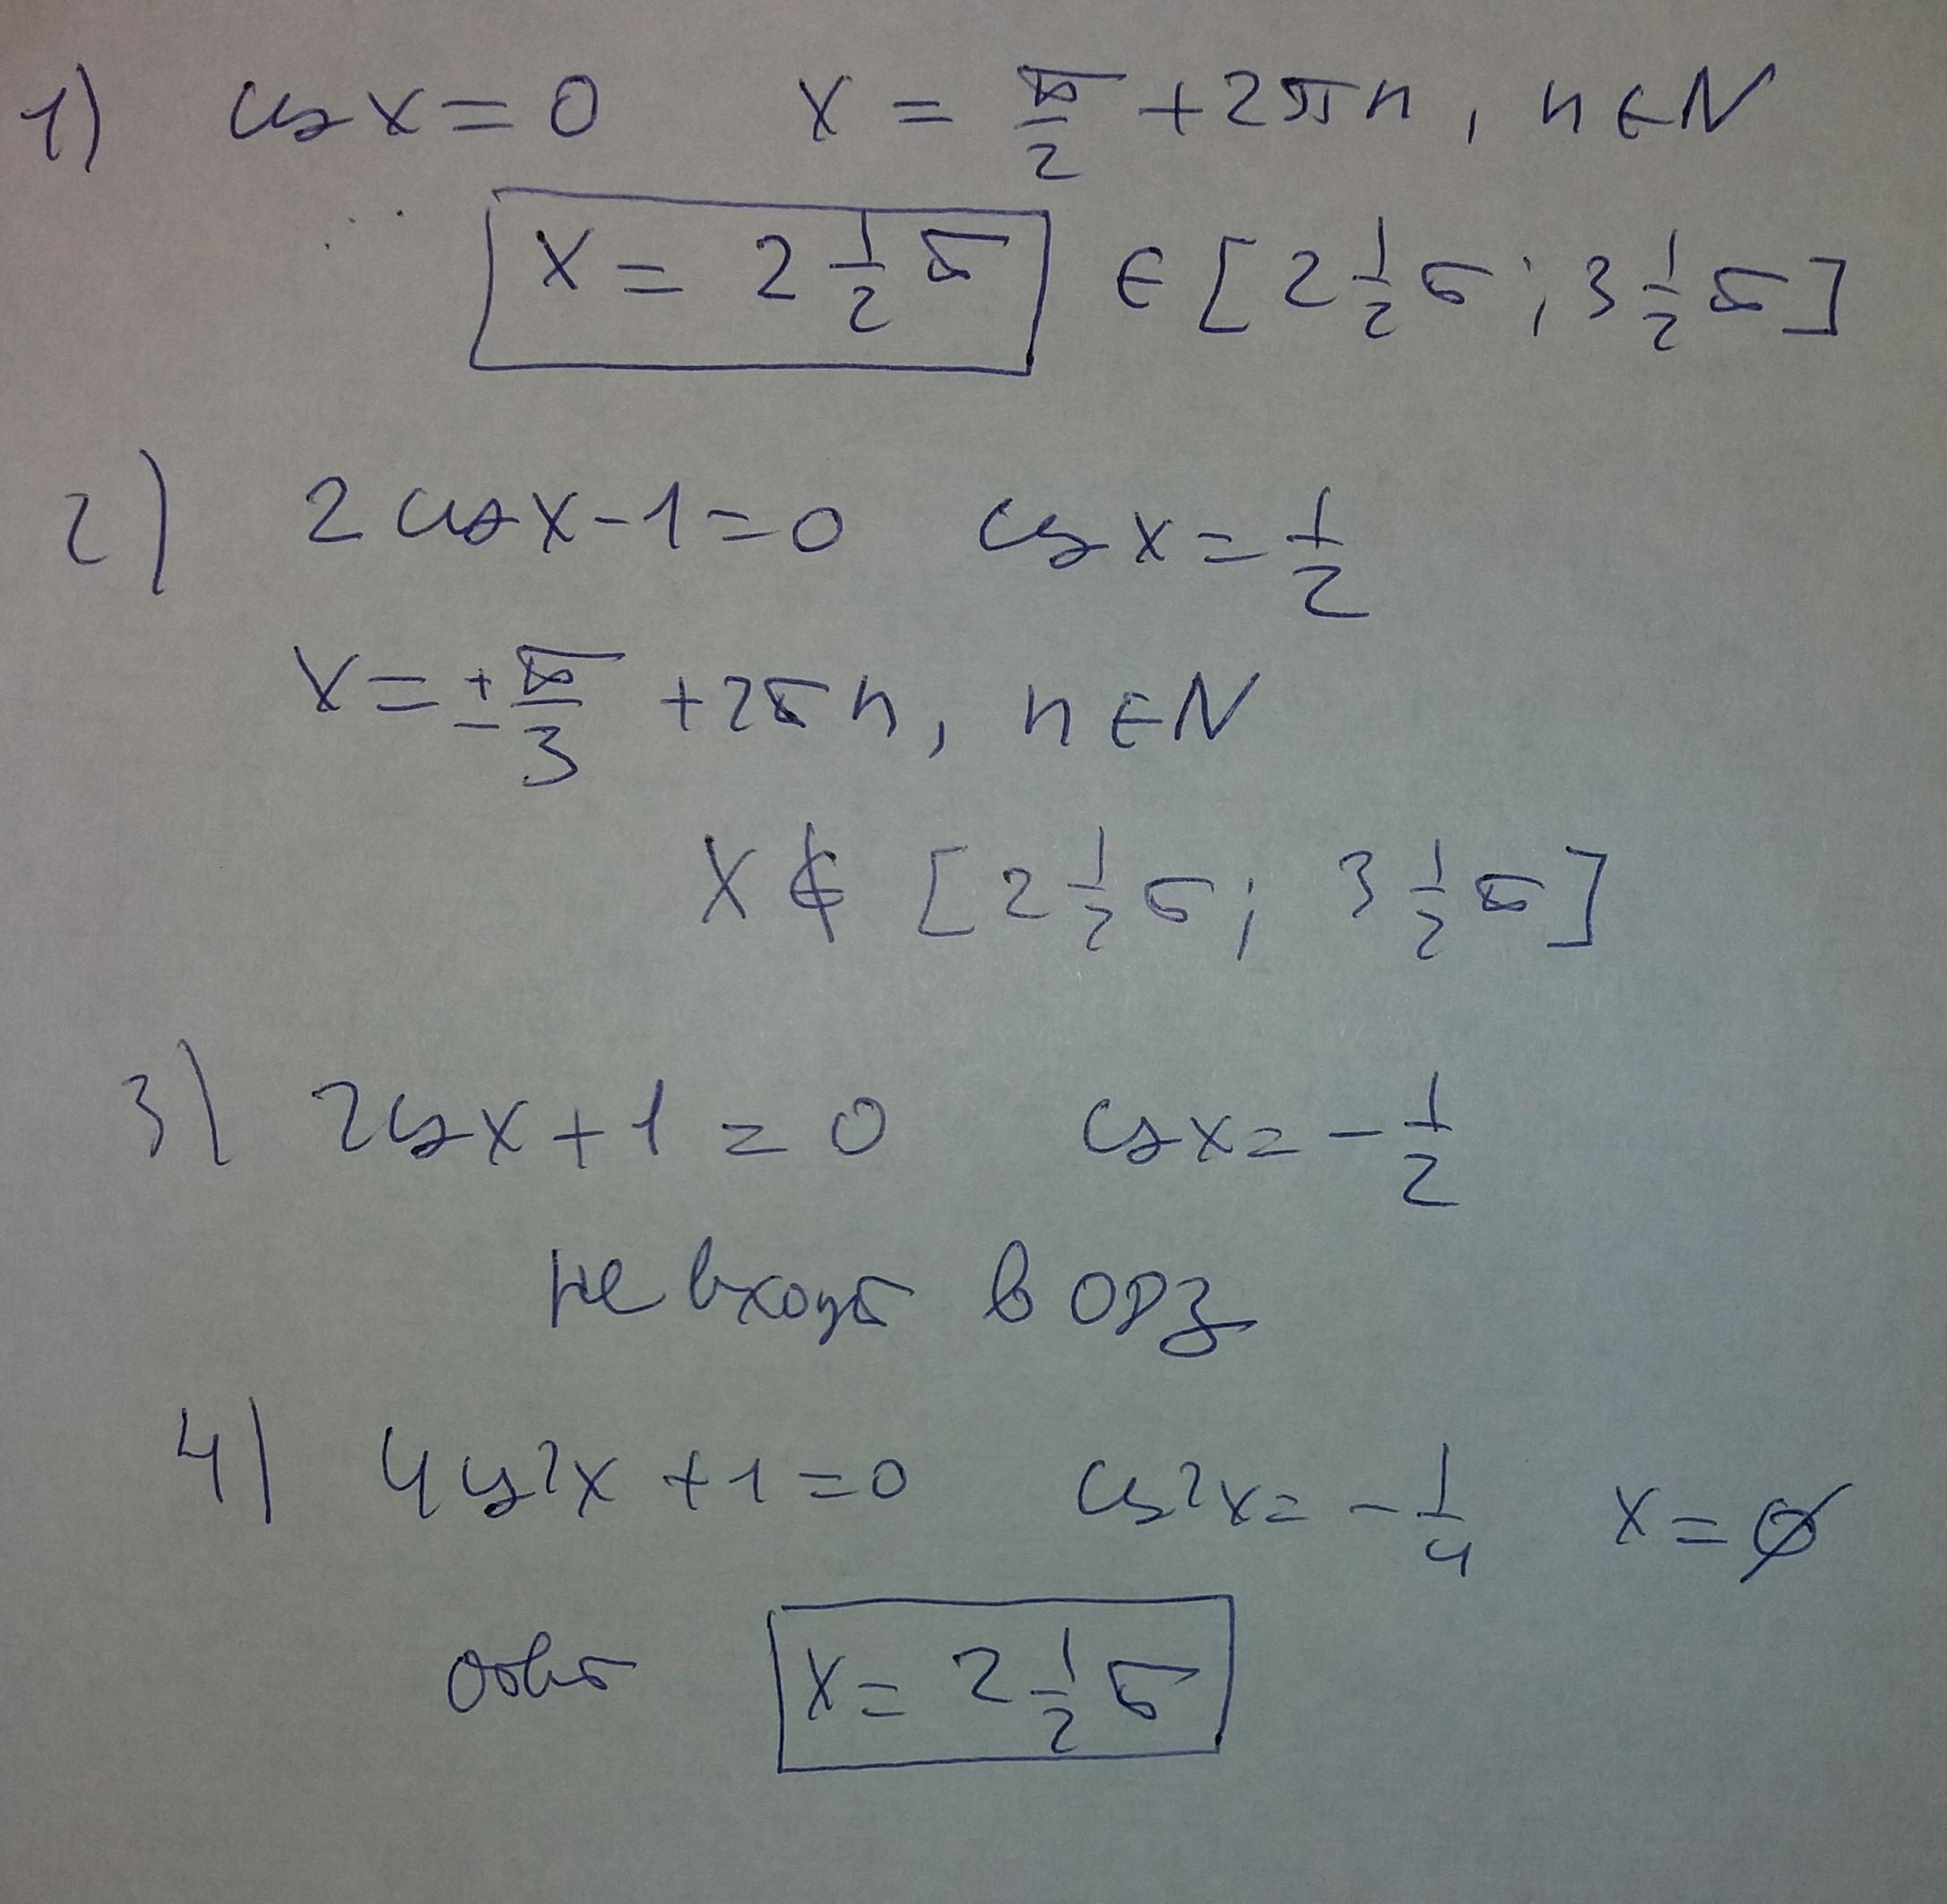 1) cos x = 0 x = π/2 + 2πn, n ∈ N
x = 2 1/2 π ∈ [2 1/2 π; 3 1/2 π]
2) 2 cos x - 1 = 0 cos x = 1/2
x = ± π/3 + 2πn, n ∈ N
x ∉ [2 1/2 π; 3 1/2 π]
3) 2 cos x + 1 = 0 cos x = - 1/2
не входит в ОДЗ
4) 4 cos² x + 1 = 0 cos² x = - 1/4 x = ∅
ответ x = 2 1/2 π